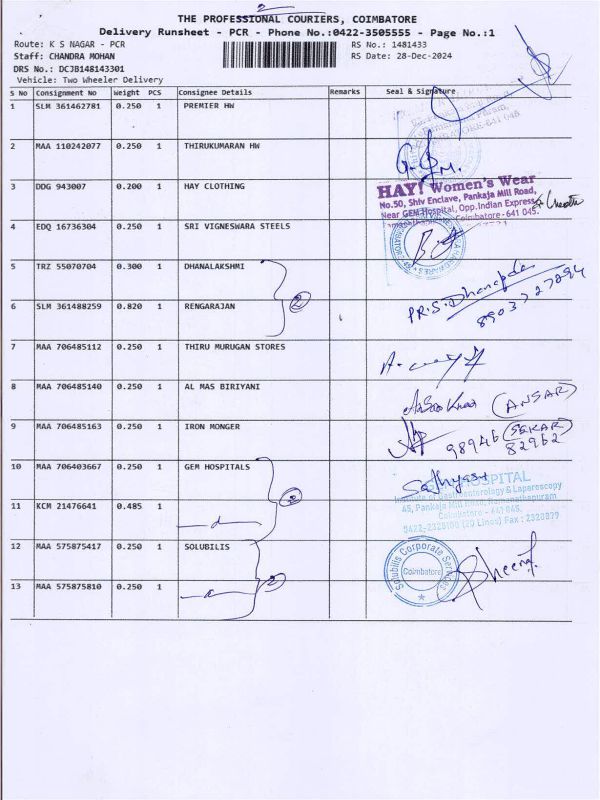 2
THE PROFESSIONAL COURIERS, COIMBATORE
Delivery Runsheet - PCR - Phone No.:0422-3505555 - Page No.:1
Route: K S NAGAR - PCR
RS No.: 1481433
Staff: CHANDRA MOHAN
RS Date: 28-Dec-2024
DRS No.: DCJB148143301
Vehicle: Two Wheeler Delivery
S No Consignment No Weight PCS Consignee Details Remarks Seal & Signature
1 SLM 361462781 0.250 1 PREMIER HW
641 045.
2 MAA 110242077 0.250 1 THIRUKUMARAN HW
3 DDG 943007 0.200 1 HAY CLOTHING
HAY! Women's Wear
No.50, Shiv Enclave, Pankaja Mill Road,
Near GEM Hospital, Opp.Indian Express
Coimbatore - 641 045.
4 EDQ 16736304 0.250 1 SRI VIGNESWARA STEELS
5 TRZ 55070704 0.300 1 DHANALAKSHMI
2
6 SLM 361488259 0.820 1 RENGARAJAN
8903727894
7 MAA 706485112 0.250 1 THIRU MURUGAN STORES
8 MAA 706485140 0.250 1 AL MAS BIRIYANI
(ANSAR)
9 MAA 706485163 0.250 1 IRON MONGER
98946 (SEKAR)
82962
10 MAA 706403667 0.250 1 GEM HOSPITALS
Sathyas
HOSPITAL
Institute of Gastroenterology & Laparoscopy
45, Pankaja Mill Road, Ramanathapuram
Coimbatore - 641 045.
0422-2325100 (20 Lines) Fax : 2320879
11 KCM 21476641 0.485 1
2
12 MAA 575875417 0.250 1 SOLUBILIS
Solubilis Corporate Services
Coimbatore
2
13 MAA 575875810 0.250 1